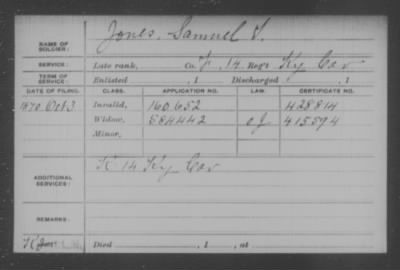 Jones, Samuel V.
NAME OF SOLDIER:
SERVICE: Late rank, Co. F, 14 Reg't Ky Cav
TERM OF SERVICE: Enlisted , 1 Discharged , 1
DATE OF FILING. CLASS. APPLICATION NO. LAW. CERTIFICATE NO.
1870 Oct 3 Invalid, 160.652 428814
Widow, 584442 415594
Minor,
ADDITIONAL SERVICES: K 14 Ky Cav
REMARKS:
Died , 1 , at